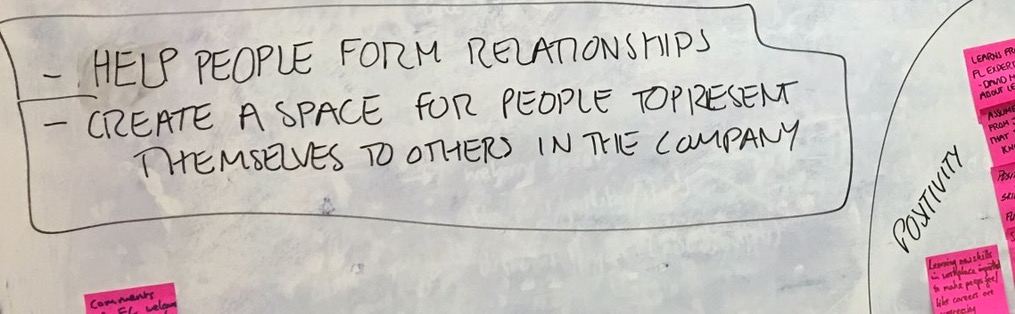 - HELP PEOPLE FORM RELATIONSHIPS
- CREATE A SPACE FOR PEOPLE TO PRESENT
THEMSELVES TO OTHERS IN THE COMPANY
POSITIVITY
LEARNS
ABOUT
ASSUME
FROM
THAT
Learning new skills
in workplace
to make people feel
like careers are
Comments